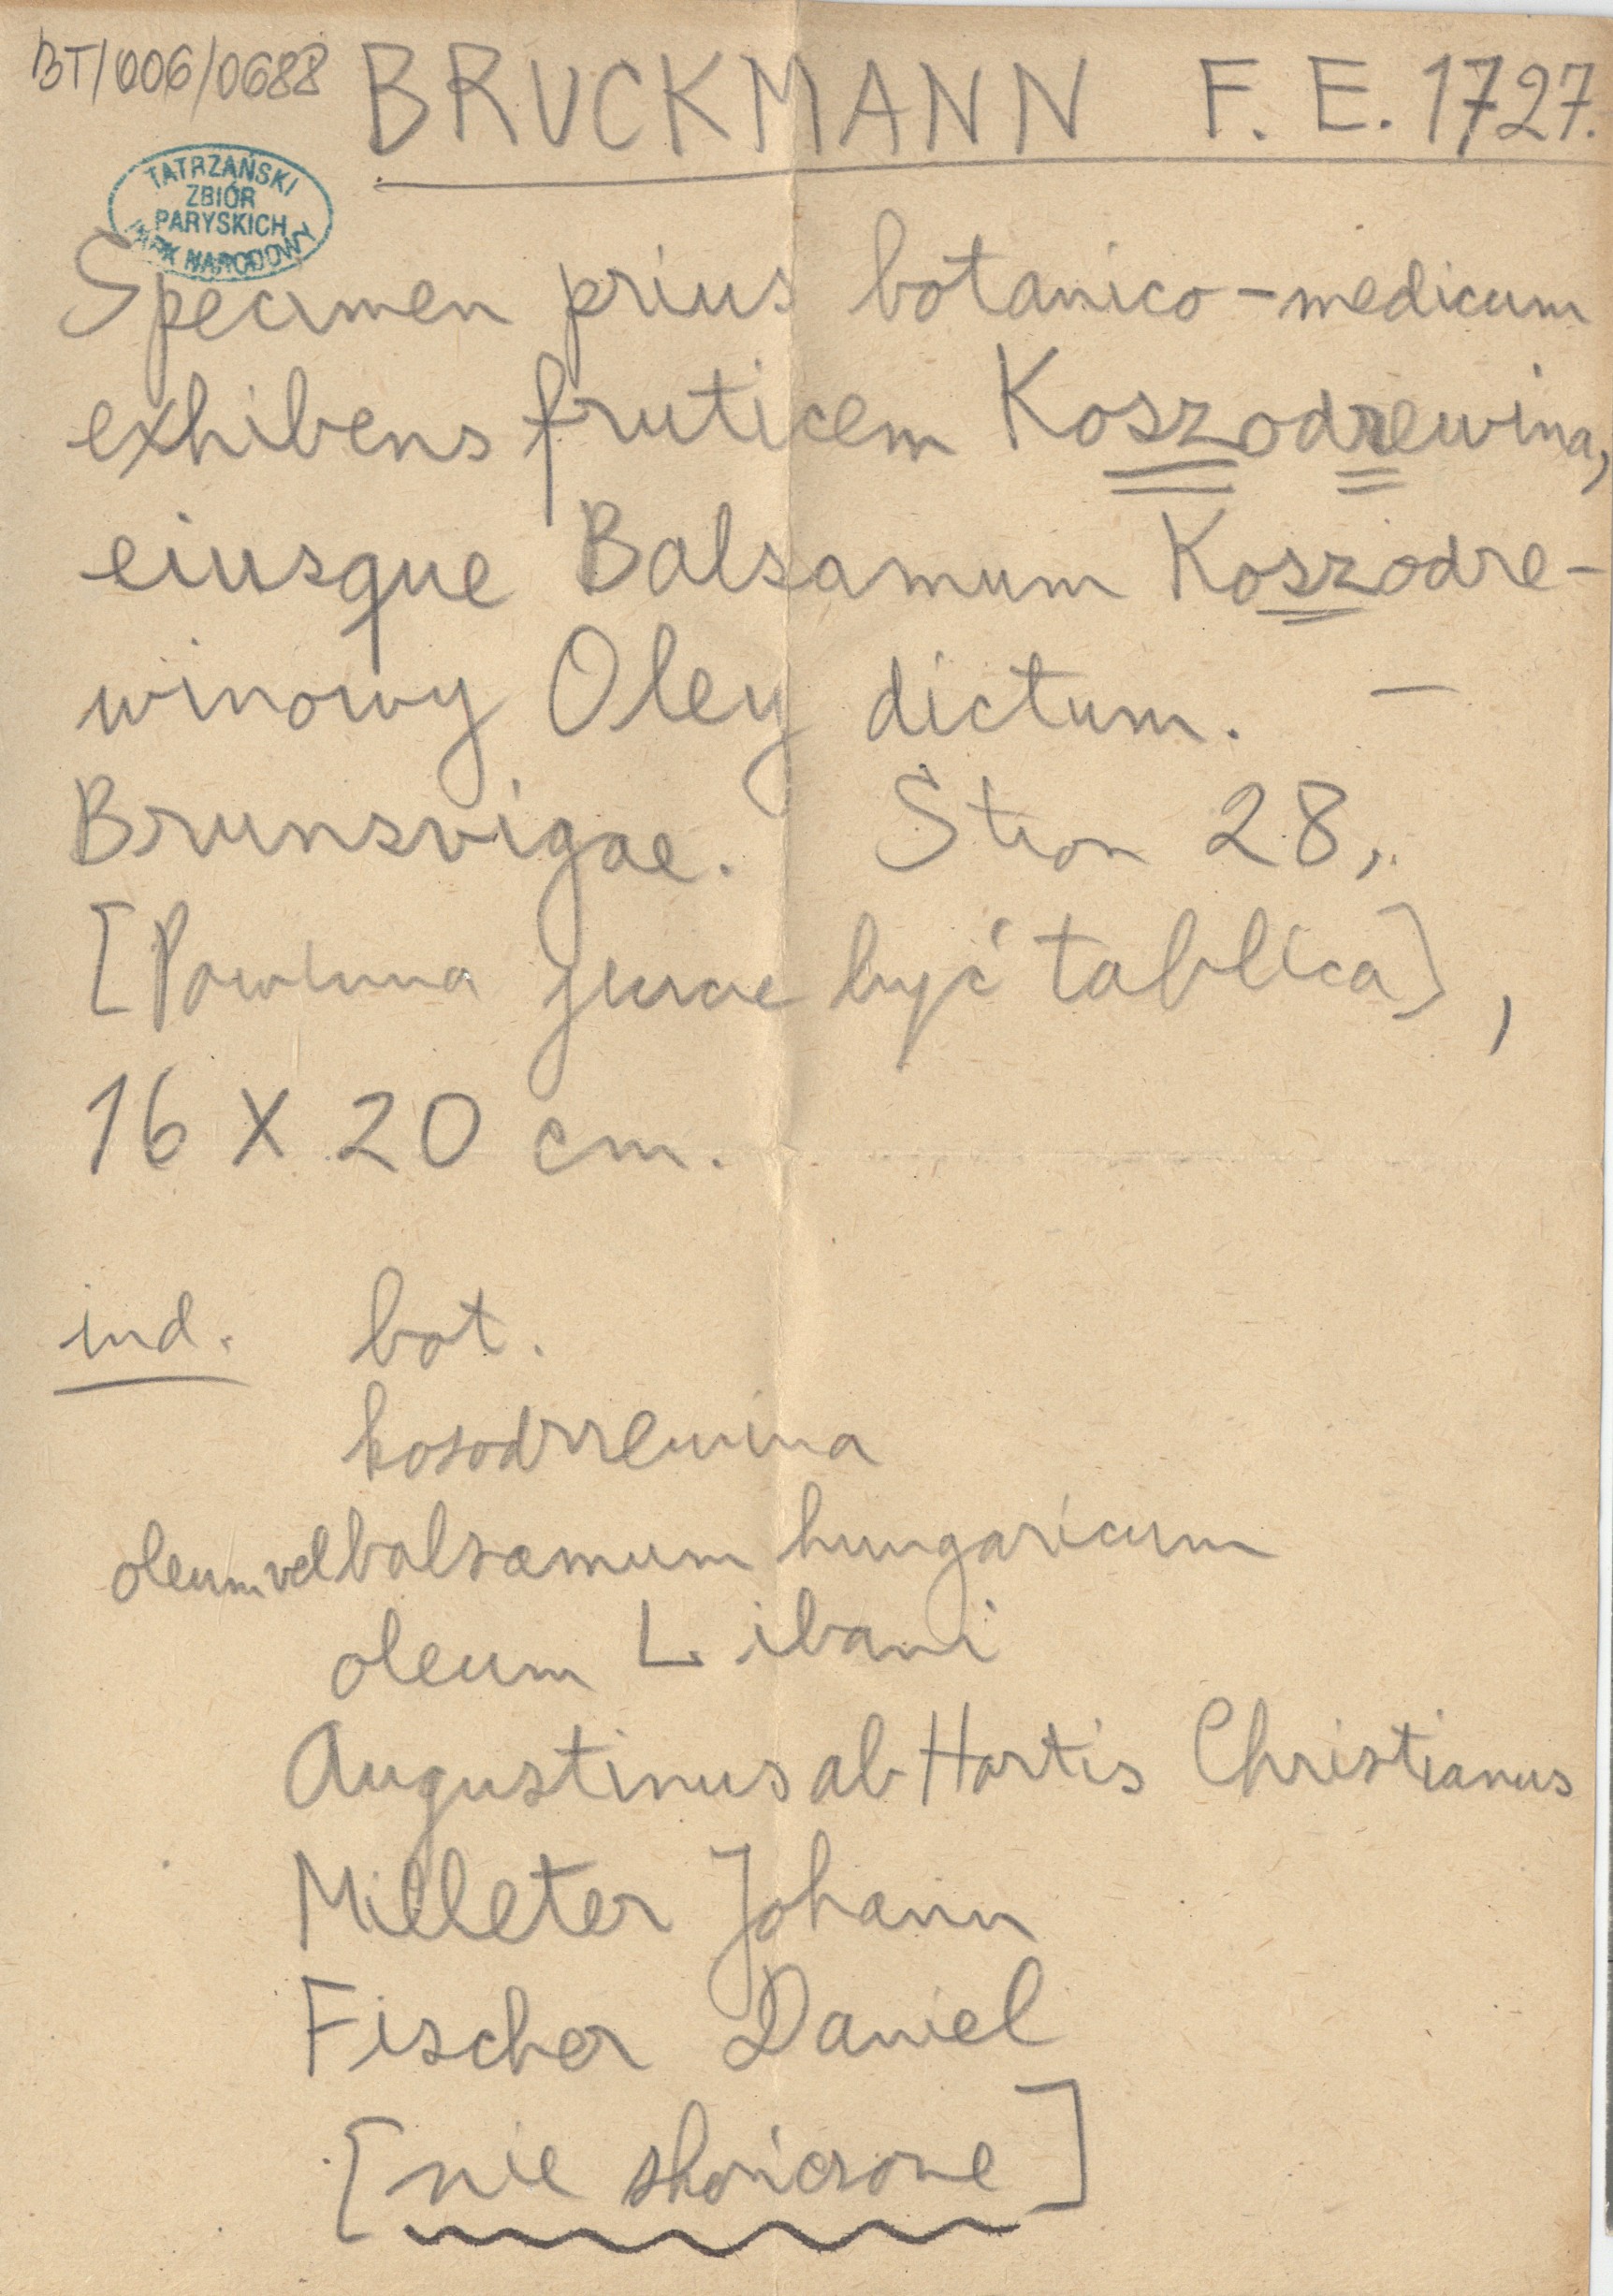 BT/006/0688 BRUCKMANN F. E. 1727.
TATRZAŃSKI
ZBIÓR
PARYSKICH
PARK NARODOWY
Specimen prius botanico-medicum
exhibens fruticem Koszodrewina,
eiusque Balsamum Koszodre-
winowy Oley dictum. —
Brunsvigae. Stron 28,
[Powinna jeszcze być tablica],
16 X 20 cm.
ind. bot.
kosodrzewina
oleum vel balsamum hungaricum
oleum Libani
Augustinus ab Hortis Christianus
Milleter Johann
Fischer Daniel
[nie skończone]